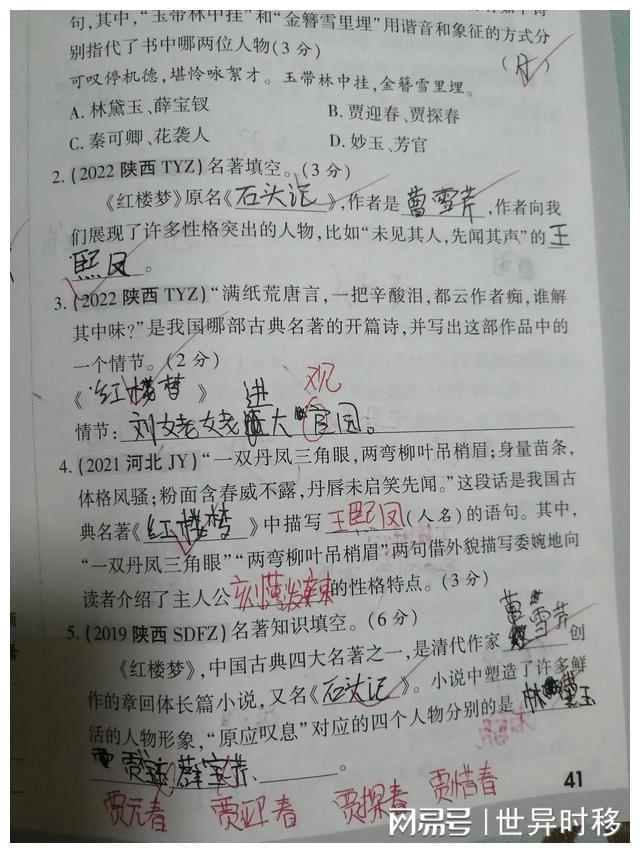 句,其中,“玉带林中挂”和“金簪雪里埋”用谐音和象征的方式分
别指代了书中哪两位人物(3分)
(A)
可叹停机德,堪怜咏絮才。玉带林中挂,金簪雪里埋。
A.林黛玉、薛宝钗 B.贾迎春、贾探春
C.秦可卿、花袭人 D.妙玉、芳官
2.(2022陕西TYZ)名著填空。(3分)
《红楼梦》原名《石头记》,作者是曹雪芹,作者向我
们展现了许多性格突出的人物,比如“未见其人,先闻其声”的王
熙凤。
3.(2022陕西TYZ)“满纸荒唐言,一把辛酸泪,都云作者痴,谁解
其中味?”是我国哪部古典名著的开篇诗,并写出这部作品中的
一个情节。(2分)
《红楼梦》 进 观
情节:刘姥姥 大官园。
4.(2021河北JY)“一双丹凤三角眼,两弯柳叶吊梢眉;身量苗条,
体格风骚;粉面含春威不露,丹唇未启笑先闻。”这段话是我国古
典名著《红楼梦》中描写王熙凤(人名)的语句。其中,
“一双丹凤三角眼”“两弯柳叶吊梢眉”两句借外貌描写委婉地向
读者介绍了主人公刻薄泼辣的性格特点。(3分)
5.(2019陕西SDFZ)名著知识填空。(6分)
《红楼梦》,中国古典四大名著之一,是清代作家曹雪芹创
作的章回体长篇小说,又名《石头记》。小说中塑造了许多鲜
活的人物形象,“原应叹息”对应的四个人物分别的是林黛玉
、薛宝、。
贾元春 贾迎春 贾探春 贾惜春
41
网易号 | 世异时移